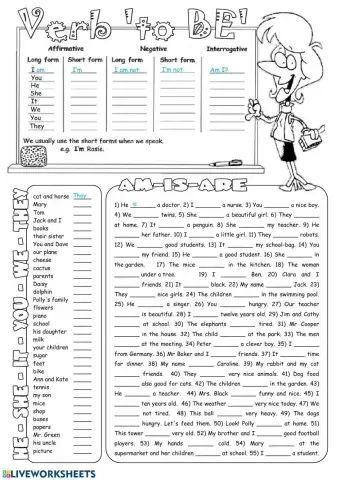 Verb 'to BE'
Affirmative Negative Interrogative
Long form Short form Long form Short form
I am I'm I am not I'm not Am I?
You
He
She
It
We
You
They
We usually use the short forms when we speak.
e.g. I'm Rosie.
HE - SHE - IT - YOU - WE - THEY
cat and horse They
Mary
Tom
Jack and I
books
their sister
You and Dave
our plane
cheese
cactus
parents
Daisy
dolphin
Polly's family
flowers
piano
school
his daughter
milk
your children
sugar
feet
bike
Ann and Kate
tennis
my son
mice
shop
buses
papers
Mr. Green
his uncle
picture
AM-IS-ARE
1) He is a doctor. 2) I ______ a nurse. 3) You ______ a nice boy.
4) We ______ twins. 5) She ______ a beautiful girl. 6) They ______
at home. 7) It ______ a penguin. 8) She ______ my teacher. 9) He
______ her father. 10) I ______ a little girl. 11) They ______ robots.
12) We ______ good students. 13) It ______ my school-bag. 14) You
______ my friend. 15) He ______ a good student. 16) She ______ in
the garden. 17) The mice ______ in the kitchen. 18) The woman
______ under a tree. 19) I ______ Ben. 20) Clara and I
______ friends. 21) It ______ black. 22) My name ______ Jack. 23)
They ______ nice girls. 24) The children ______ in the swimming pool.
25) He ______ a singer. 26) You ______ hungry. 27) Our teacher
______ is beautiful. 28) I ______ twelve years old. 29) Jim and Cathy
______ at school. 30) The elephants ______ tired. 31) Mr Cooper
______ in the house. 32) The child ______ at the park. 33) The men
______ at the meeting. 34) Peter ______ a clever boy. 35) I ______
from Germany. 36) Mr Baker and I ______ friends. 37) It ______ time
for dinner. 38) My name ______ Caroline. 39) My rabbit and my cat
______ friends. 40) They ______ very nice animals. 41) Dog food
______ also good for cats. 42) The children ______ in the garden. 43)
He ______ a teacher. 44) Mrs. Black ______ funny and nice. 45) I
______ ten years old. 46) The weather ______ very nice today. 47) We
______ not tired. 48) This ball ______ very heavy. 49) The dogs
______ hungry. Let's feed them. 50) Look! Polly ______ at home. 51) This
______ very old. 52) My brother and I ______ good football
players. 53) My hands ______ cold. 54) Mary ______ at the
supermarket and her children ______ at school. 55) I ______ a student.
LIVEWORKSHEETS